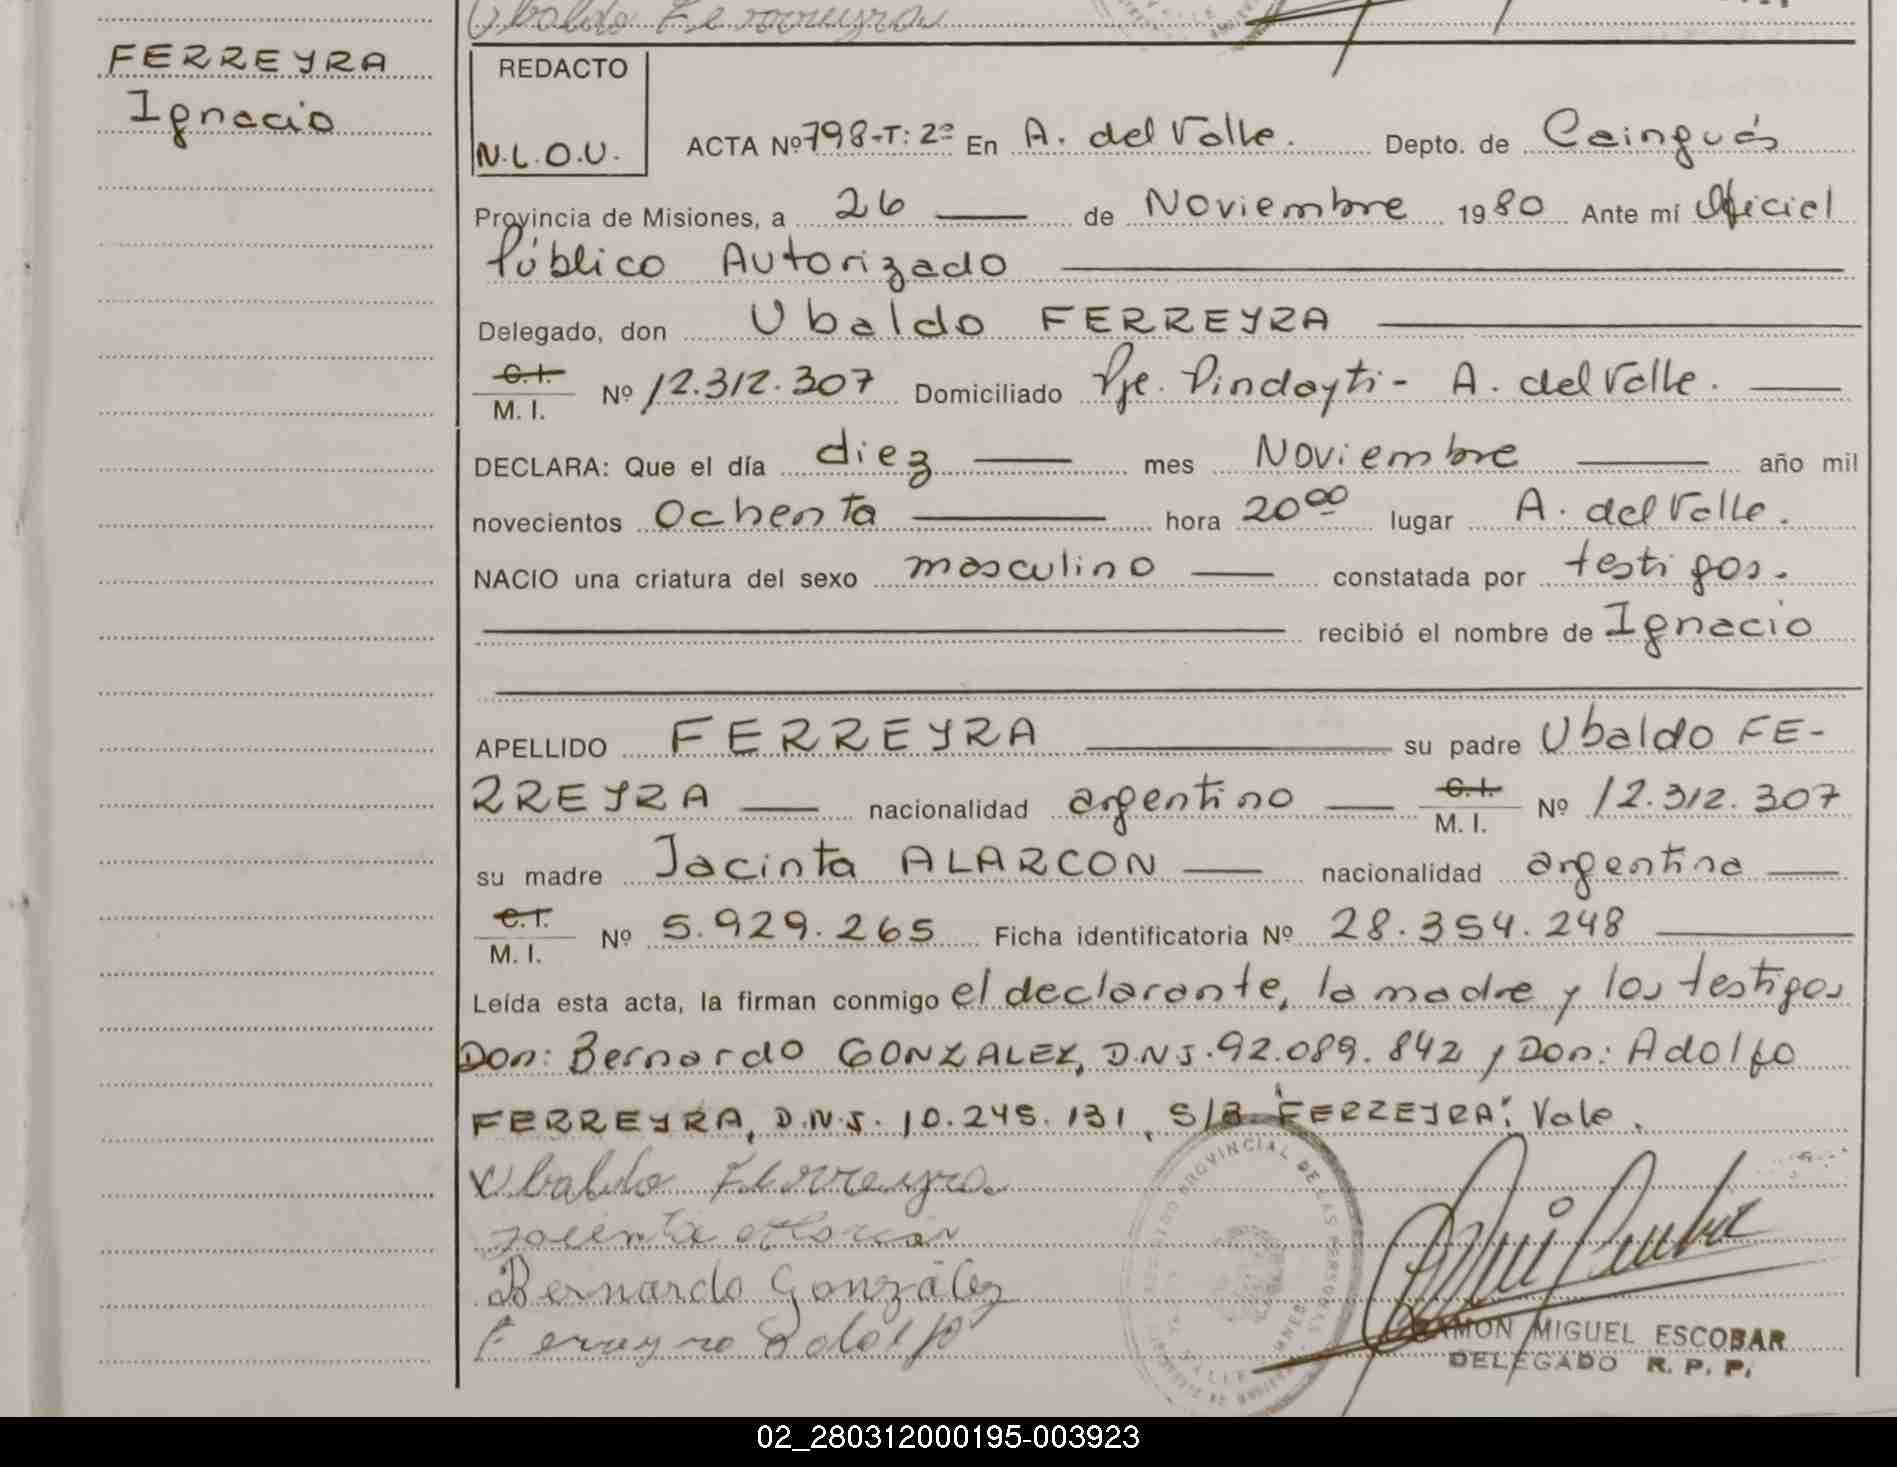 Ubaldo Ferreyra
FERREYRA
Ignacio
REDACTO
N.L.O.U.
ACTA Nº 798-T: 2º En A. del Valle. Depto. de Caingüás
Provincia de Misiones, a 26 de Noviembre 1980 Ante mí Oficial
Público Autorizado
Delegado, don Ubaldo FERREYRA
C.I. M. I. Nº 12.312.307 Domiciliado Pje. Pindayti - A. del Valle.
DECLARA: Que el día diez mes Noviembre año mil
novecientos Ochenta hora 20ºº lugar A. del Valle.
NACIO una criatura del sexo masculino constatada por testigos.
recibió el nombre de Ignacio
APELLIDO FERREYRA su padre Ubaldo FE-
RREYRA nacionalidad argentino C.I. M. I. Nº 12.312.307
su madre Jacinta ALARCON nacionalidad argentina
C.I. M. I. Nº 5.929.265 Ficha identificatoria Nº 28.354.248
Leída esta acta, la firman conmigo el declarante, la madre y los testigos
Don: Bernardo GONZALEZ, D.N.I. 92.089.842 y Don: Adolfo
FERREYRA, D.N.I. 10.245.131, S/B "FERREYRA": Vale.
Ubaldo Ferreyra
Jacinta Alarcon
Bernardo González
Ferreyra Adolfo
REGISTRO PROVINCIAL DE LAS PERSONAS
RAMON MIGUEL ESCOBAR
DELEGADO R. P. P.
02_280312000195-003923